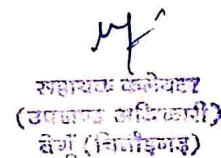 सहायक कलेक्टर
(उपखण्ड अधिकारी)
बेगूं (चित्तौड़गढ़)